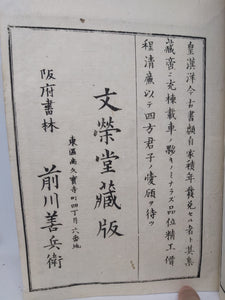 皇漢洋今古書類自家積年發兌セル者ト其集
藏書ニ充棟載車ノ夥キノミナラス品位精工價
程清廉以テ四方君子ノ愛顧ヲ待ツ
文榮堂藏版
東區南久寶寺町四丁目六番地
阪府書林 前川善兵衛